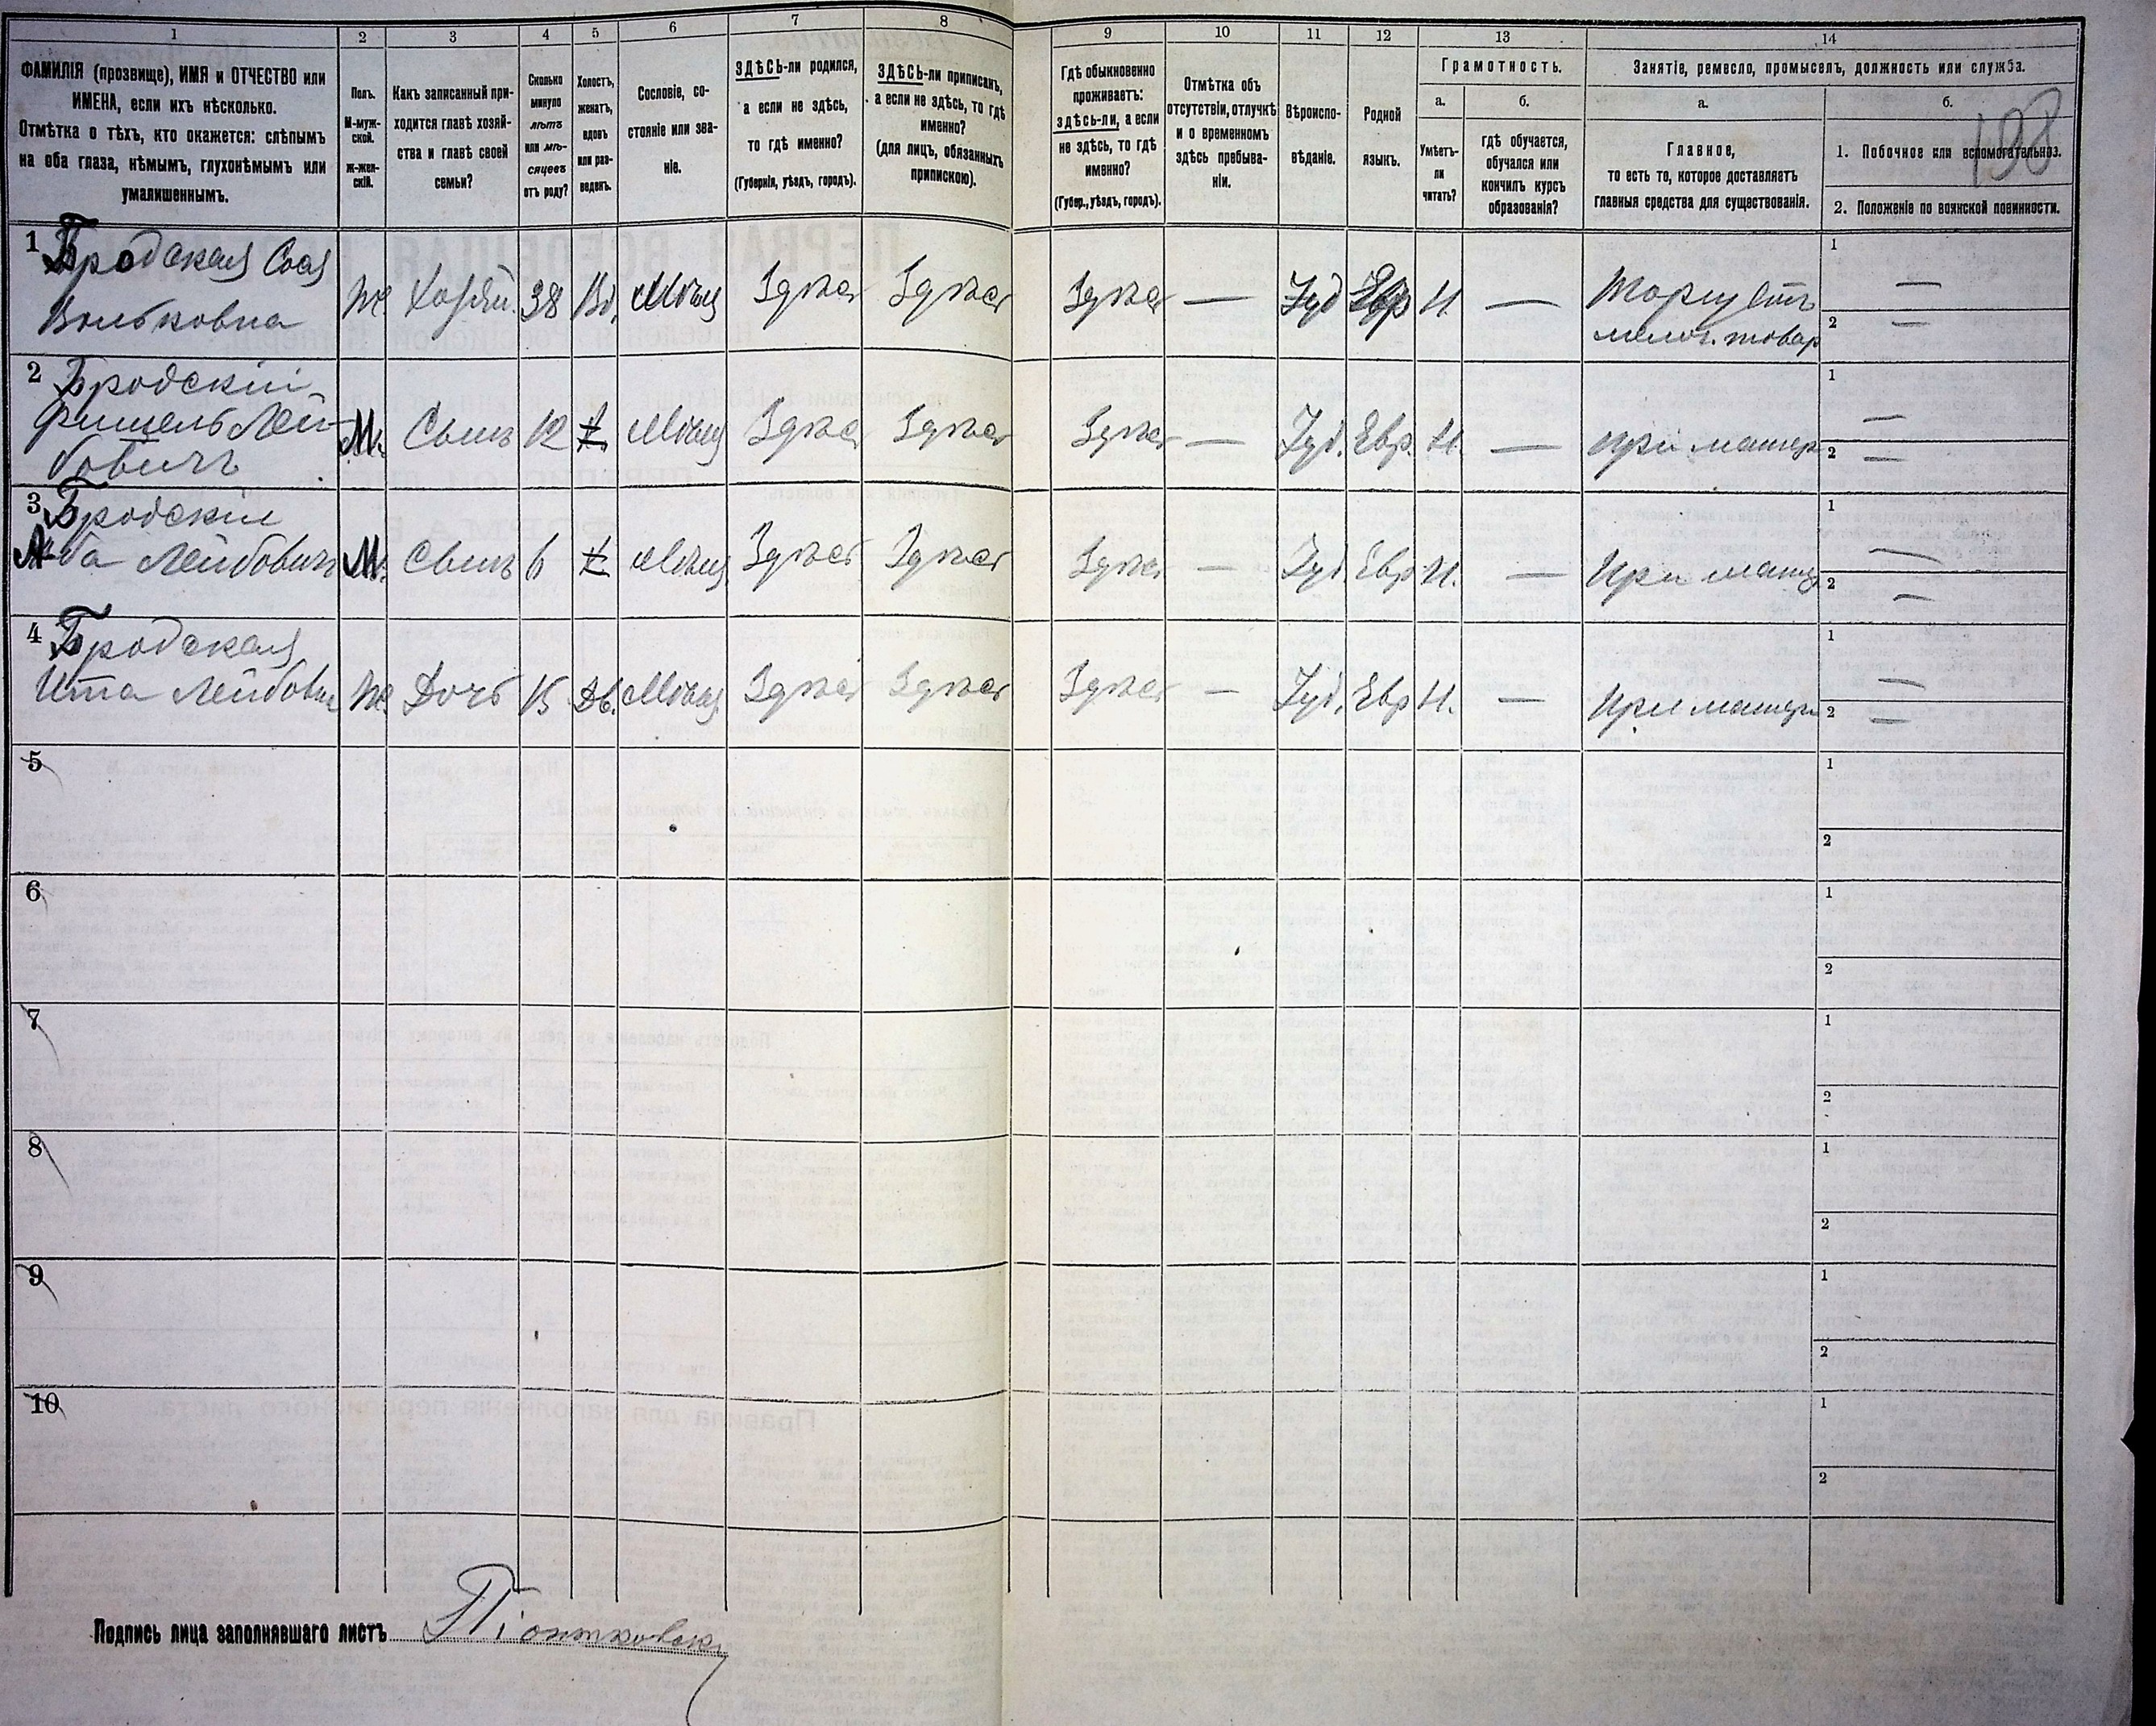 1
2
3
4
5
6
7
8
9
10
11
12
13
14
ФАМИЛІЯ (прозвище), ИМЯ и ОТЧЕСТВО или
ИМЕНА, если ихъ нѣсколько.
Отмѣтка о тѣхъ, кто окажется: слѣпымъ
на оба глаза, нѣмымъ, глухонѣмымъ или
умалишеннымъ.
Полъ.
М-муж-
ской.
ж-жен-
скій.
Какъ записанный при-
ходится главѣ хозяй-
ства и главѣ своей
семьи?
Сколько
минуло
лѣтъ
или мѣ-
сяцевъ
отъ роду?
Холостъ,
женатъ,
вдовъ
или раз-
веденъ.
Сословіе, со-
стояніе или зва-
ніе.
ЗДѢСЬ-ли родился,
а если не здѣсь,
то гдѣ именно?
(Губернія, уѣздъ, городъ).
ЗДѢСЬ-ли приписанъ,
а если не здѣсь, то гдѣ
именно?
(для лицъ, обязанныхъ
припискою).
Гдѣ обыкновенно
проживаетъ:
здѣсь-ли, а если
не здѣсь, то гдѣ
именно?
(Губер., уѣздъ, городъ).
Отмѣтка объ
отсутствіи, отлучкѣ
и о временномъ
здѣсь пребыва-
ніи.
Вѣроиспо-
вѣданіе.
Родной
языкъ.
Грамотность.
а.
б.
Умѣетъ-
ли
читать?
гдѣ обучается,
обучался или
кончилъ курсъ
образованія?
Занятіе, ремесло, промыселъ, должность или служба.
а.
б.
Главное,
то есть то, которое доставляетъ
главныя средства для существованія.
1. Побочное или вспомогательное.
2. Положеніе по воинской повинности.
198
1 Бродская Сося
Вольковна
Ж. Хозяй. 38 Вд. Мѣщ Здѣсь Здѣсь Здѣсь — Іуд Евр Н. — Торгуетъ
мелоч. товар
1 —
2 —
2 Бродскій
Фишель Лей-
бовичъ
М. Сынъ 12 Х. Мѣщ Здѣсь Здѣсь Здѣсь — Іуд. Евр. Н. — при матери
1 —
2 —
3 Бродскій
Аба Лейбовичъ
М. Сынъ 6 Х. Мѣщ Здѣсь Здѣсь Здѣсь — Іуд. Евр Н. — При матер
1 —
2 —
4 Бродская
Ита Лейбовн
Ж. Дочь 15 Дѣв. Мѣщ Здѣсь Здѣсь Здѣсь — Іуд. Евр Н. — При матери
1 —
2 —
5
1
2
6
1
2
7
1
2
8
1
2
9
1
2
10
1
2
Подпись лица заполнявшаго листъ